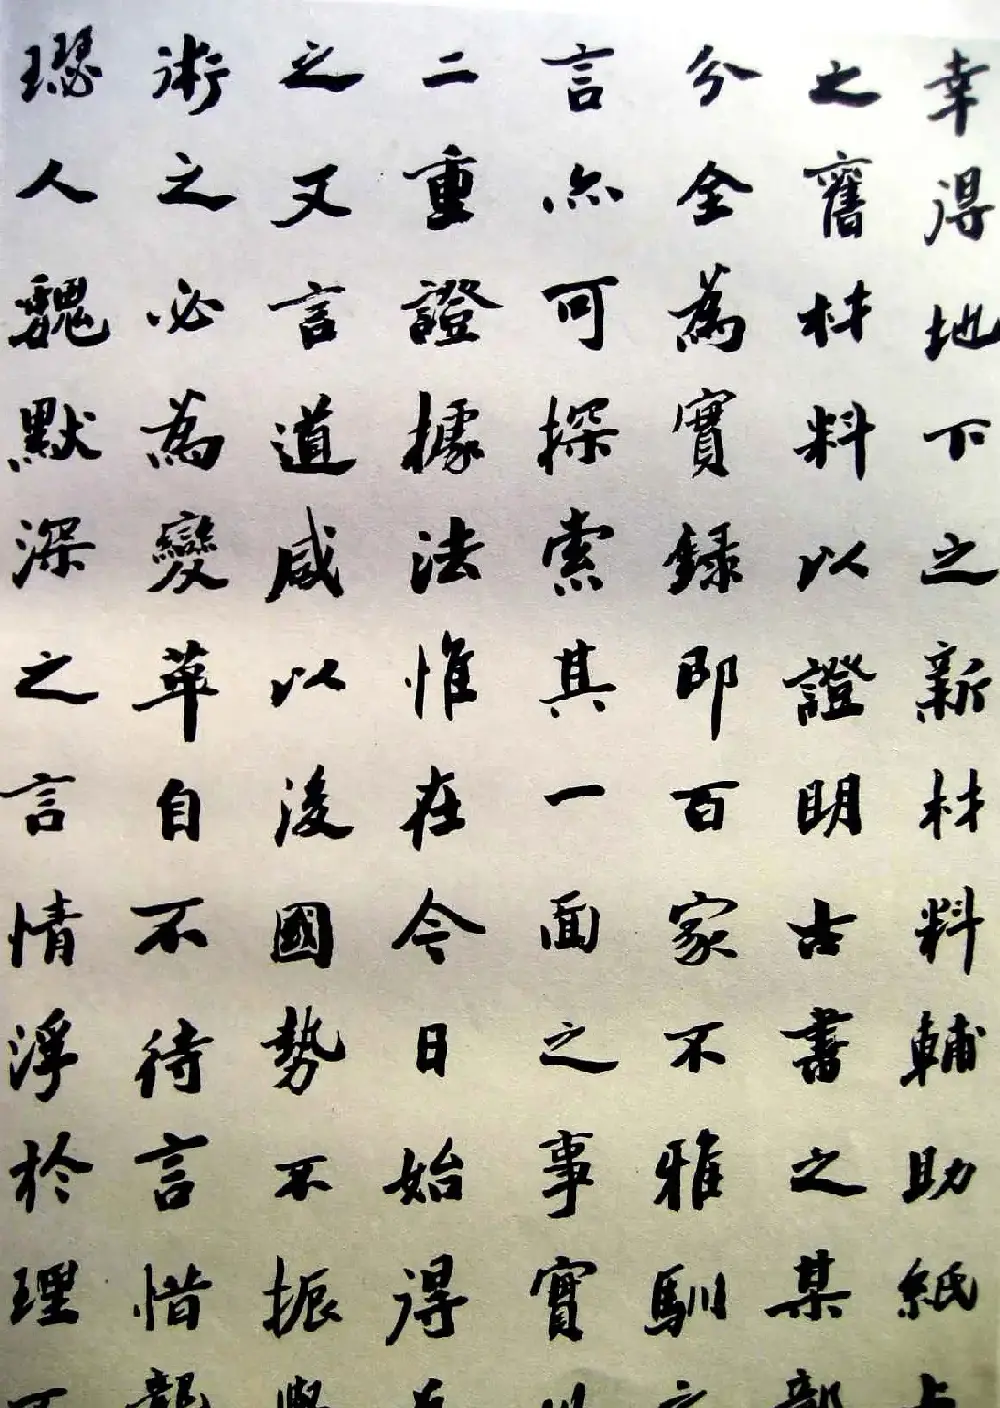 幸得地下之新材料輔助紙上
之舊材料以證明古書之某部
分全為實錄即百家不雅馴之
言亦可探索其一面之事實以
二重證據法惟在今日始得在
之又言道咸以後國勢不振興
術之必為變革自不待言惜龍
璱人魏默深之言情浮於理可